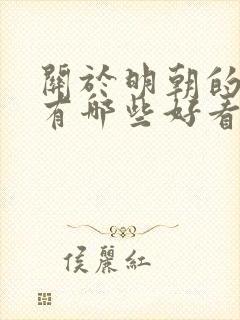 關於明朝的
有哪些好看
侯麗紅